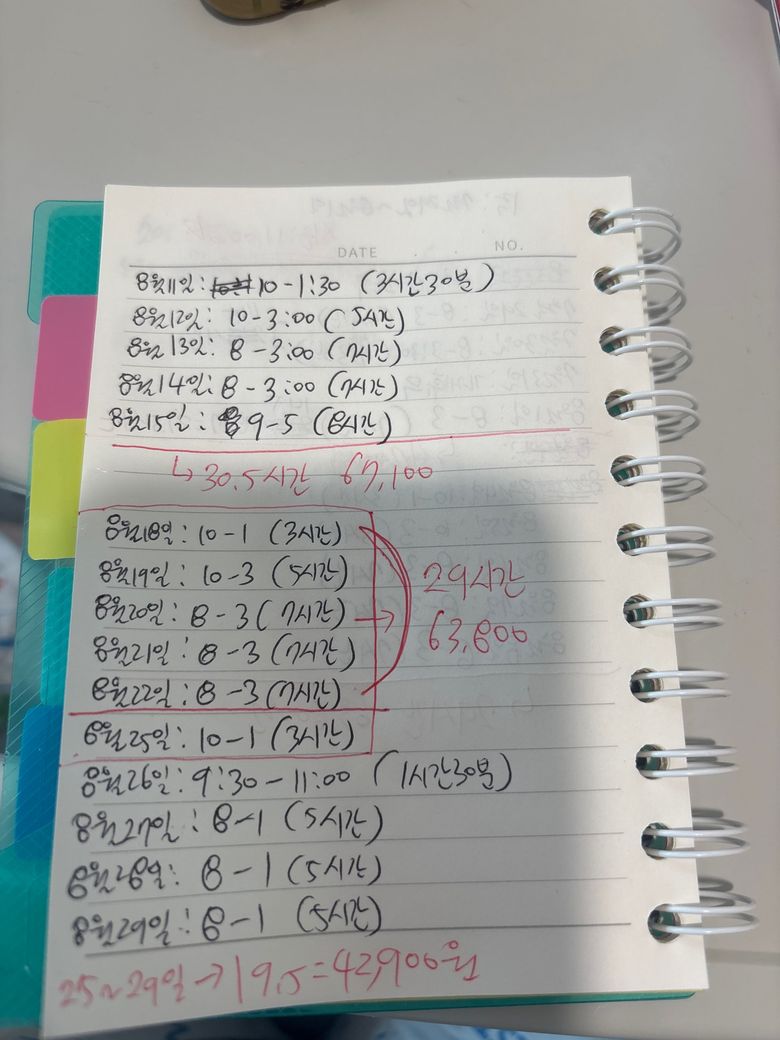 DATE . . NO.
8월11일: 10-1:30 (3시간30분)
8월12일: 10-3:00 (5시간)
8월13일: 8-3:00 (7시간)
8월14일: 8-3:00 (7시간)
8월15일: 9-5 (8시간)
↳ 30.5시간 67,100
8월18일: 10-1 (3시간)
8월19일: 10-3 (5시간)
8월20일: 8-3 (7시간)
8월21일: 8-3 (7시간)
8월22일: 8-3 (7시간)
29시간
63,800
8월25일: 10-1 (3시간)
8월26일: 9:30-11:00 (1시간30분)
8월27일: 8-1 (5시간)
8월28일: 8-1 (5시간)
8월29일: 8-1 (5시간)
25~29일 → 19.5=42,900원